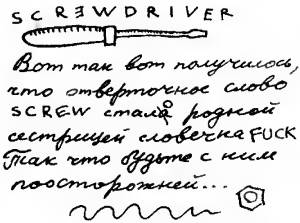 SCREWDRIVER
Вот так вот получилось,
что отверточное слово
SCREW стало родной
сестрицей словечка FUCK
Так что будьте с ним
поосторожней...